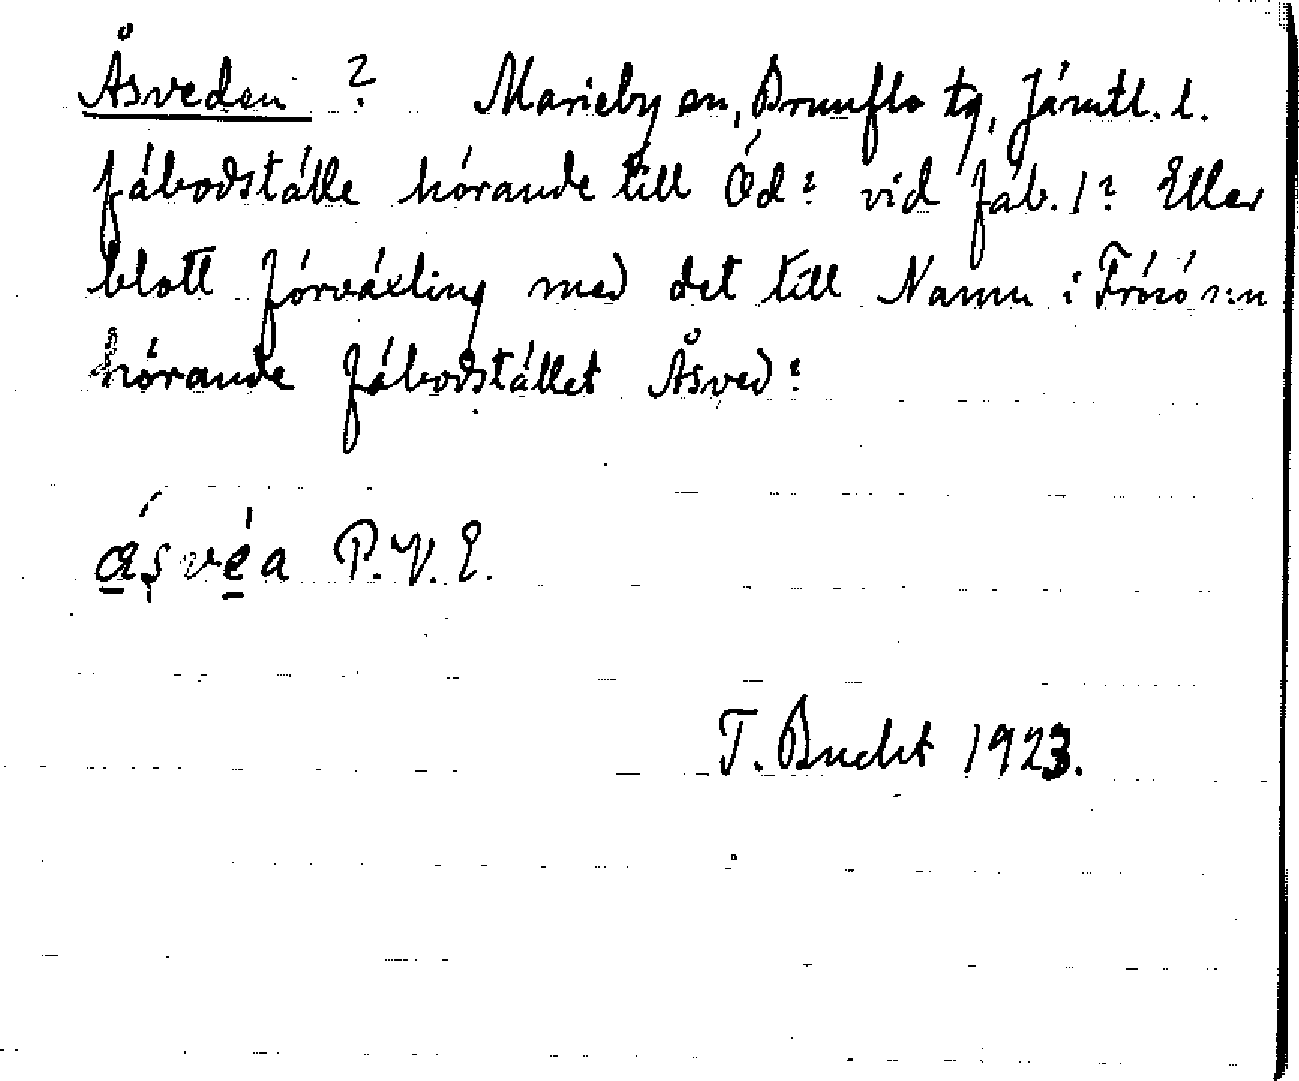 Åsveden ? Marieby sn, Brunflo tg, Jämtl. l.
fäbodställe hörande till Öd? vid fäb. 1? Eller
blott förväxling med det till Namn i Frösö sn
hörande fäbodstället Åsved?
æsvea P.V.E.
T. Bucht 1923.